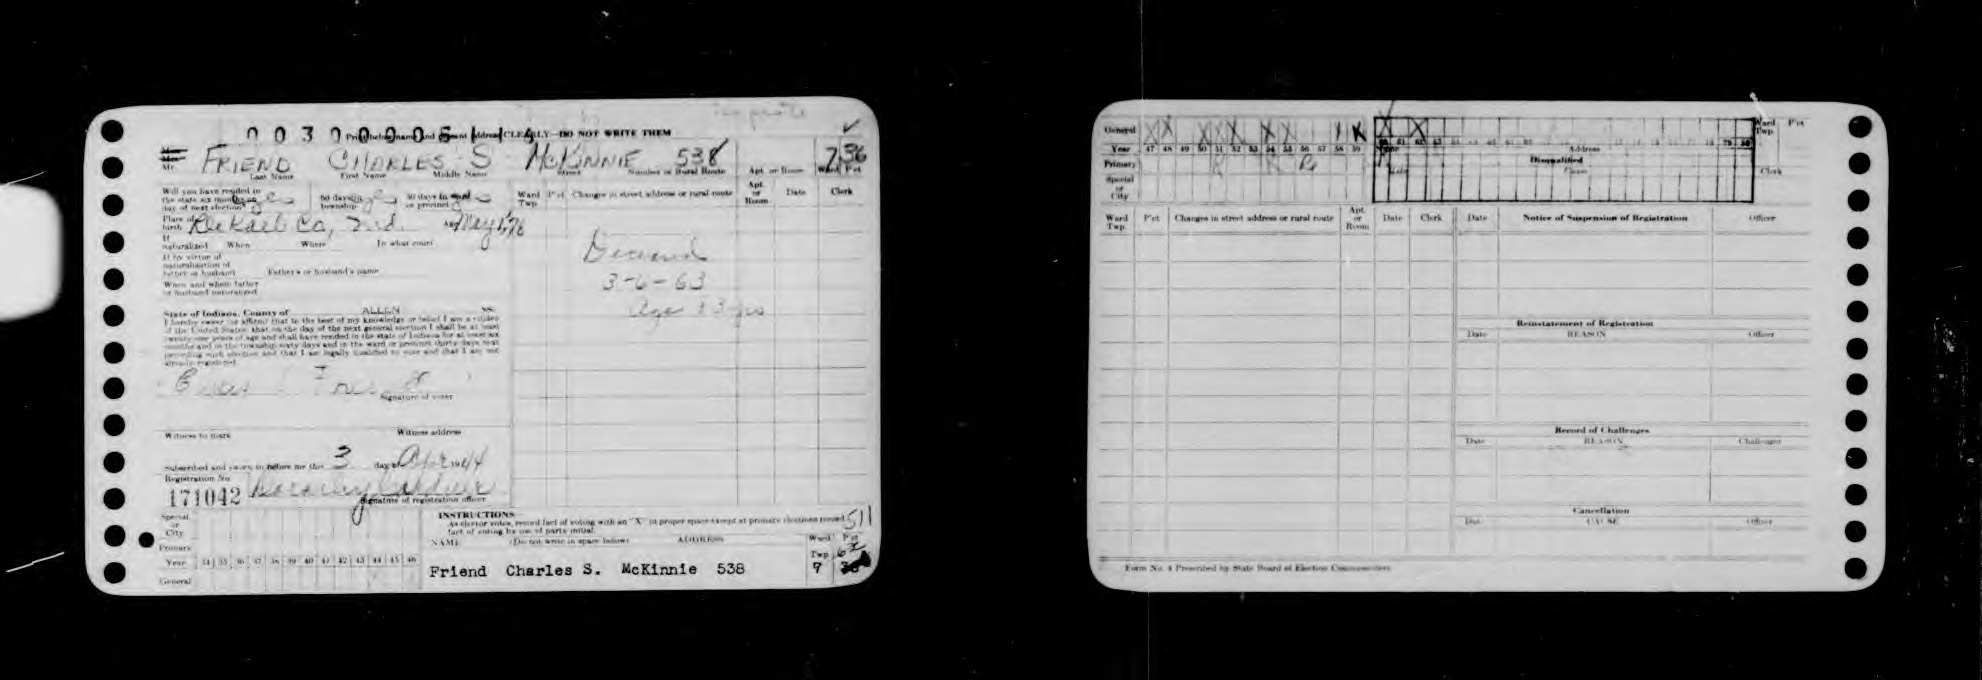 0030000511
Print below name and present address CLEARLY—DO NOT WRITE THEM
Mr. FRIEND CHARLES S McKINNIE 538 7 36
Last Name First Name Middle Name Street Number or Rural Route Apt. or Room Ward P'ct
Will you have resided in
the state six months on
day of next election? yes
60 days in
township yes
30 days in
or precinct yes
Place of
birth DeKalb Co, Ind. May
If
naturalized When Where In what court
If by virtue of
naturalization of
father or husband Father's or husband's name
When and where father
or husband naturalized
State of Indiana, County of ALLEN SS:
I hereby swear (or affirm) that to the best of my knowledge or belief I am a citizen
of the United States; that on the day of the next general election I shall be at least
twenty-one years of age and shall have resided in the state of Indiana for at least six
months and in the township sixty days and in the ward or precinct thirty days next
preceding such election and that I am legally qualified to vote and that I am not
already registered
Signature of voter
Witness to mark Witness address
Subscribed and sworn to before me this 3 day of Apr 1944
Registration No.
171042
Signature of registration officer
Special
or
City
Primary
Year 34 35 36 37 38 39 40 41 42 43 44 45 46
General
Ward Twp. P'ct Changes in street address or rural route Apt. or Room Date Clerk
Deceased
3-6-63
Age 83 yrs
INSTRUCTIONS
As elector votes, record fact of voting with an "X" in proper space except at primary elections record
fact of voting by use of party initial.
511
NAME (Do not write in space below) ADDRESS Ward Twp. P'ct
Friend Charles S. McKinnie 538 7
General X X X X X X X X X X X
Year 47 48 49 50 51 52 53 54 55 56 57 58 59
Primary R R R
Special
or
City
Address
Disqualified
Cause
Ward Twp. P'ct
Clerk
Ward Twp. P'ct Changes in street address or rural route Apt. or Room Date Clerk
Date Notice of Suspension of Registration Officer
Reinstatement of Registration
Date REASON Officer
Record of Challenges
Date REASON Challenger
Cancellation
Date CAUSE Officer
Form No. 4 Prescribed by State Board of Election Commissioners